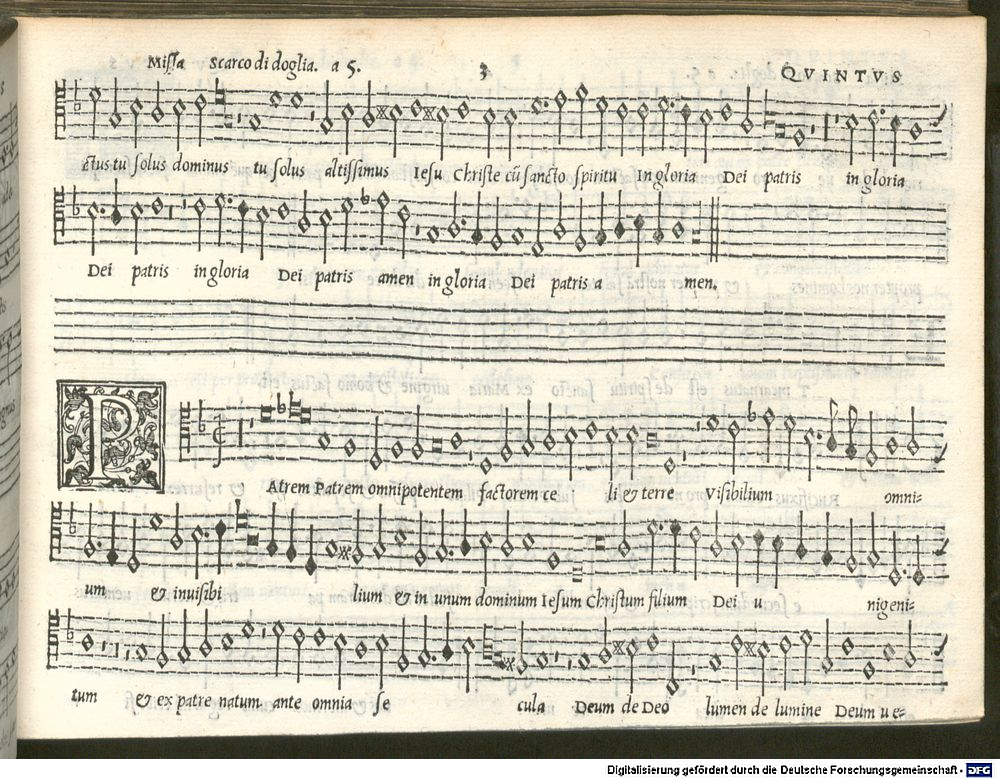 Missa Scarco di doglia. a 5. 3 QVINTVS
ctus tu solus dominus tu solus altissimus Iesu Christe cū sancto spiritu In gloria Dei patris in gloria
Dei patris in gloria Dei patris amen in gloria Dei patris a men.
P
Atrem Patrem omnipotentem factorem ce li & terre Visibilium omni-
um & inuisibi lium & in unum dominum Iesum Christum filium Dei u nigeni-
tum & ex patre natum. ante omnia se cula Deum de Deo lumen de lumine Deum ue-
Digitalisierung gefördert durch die Deutsche Forschungsgemeinschaft - DFG